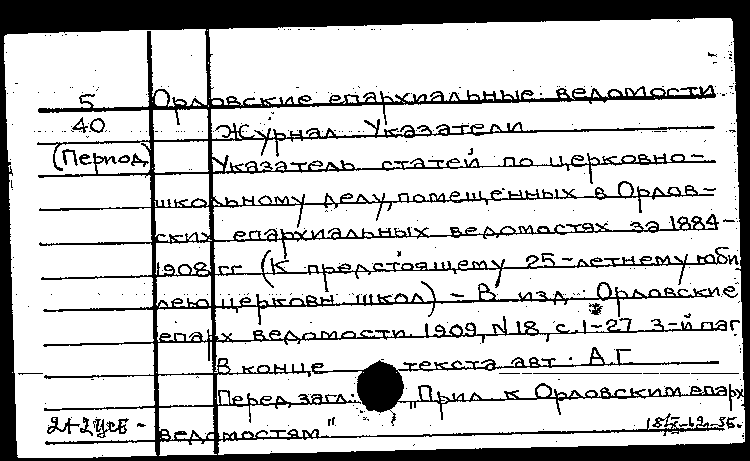 5
40
(Период)
Орловские епархиальные ведомости
Журнал Указатели
Указатель статей по церковно-
школьному делу, помещенных в Орлов-
ских епархиальных ведомостях за 1884-
1908 гг (К предстоящему 25-летнему юби
лею церковн. школ) - В изд. Орловские
епарх ведомости. 1909, N 18, с. 1-27 3-й паг
В конце текста авт. А.Г.
Перед загл.: "Прил. к Орловским епарх
ведомостям"